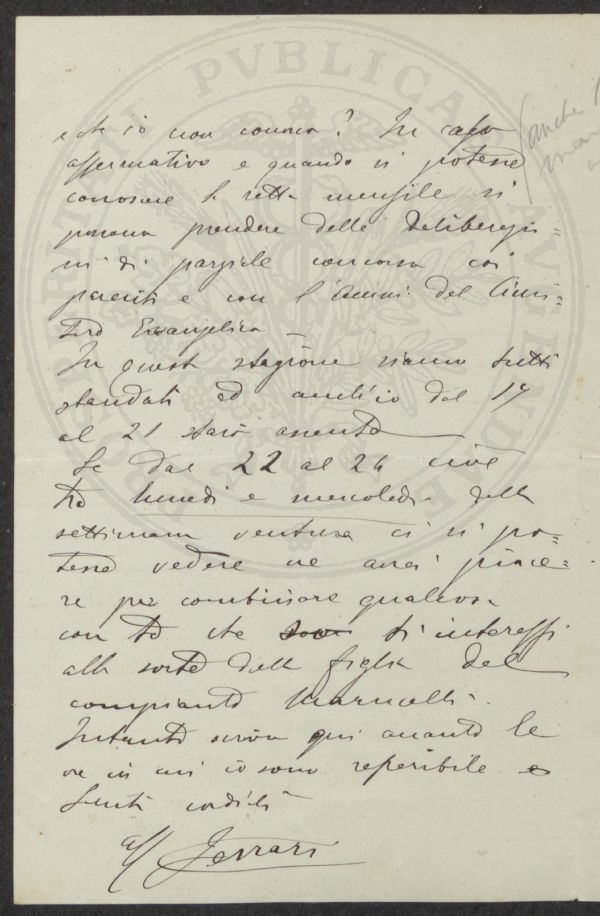 e che io non conosco? In caso
affermativo e quando si potesse
conoscere la retta mensile si
possono prendere delle deliberazio=
ni di parziale concorso coi
parenti e con l'Ammi: del Cimi=
tero Evangelico —
In questa stagione siamo tutti
sbandati ed anch'io dal 17
al 21 starò assente
Se dal 22 al 24 cioè
tra lunedì e mercoledì della
settimana ventura ci si po=
tesse vedere ne avrei piace=
re per combinare qualcosa
con te che ti interessi
alla sorte della figlia del
compianto Marucelli.
Intanto scrivo qui accanto le
ore in cui io sono reperibile e
Saluti cordiali
aff Ferrari
(anche
PROPERTY PVBLICA